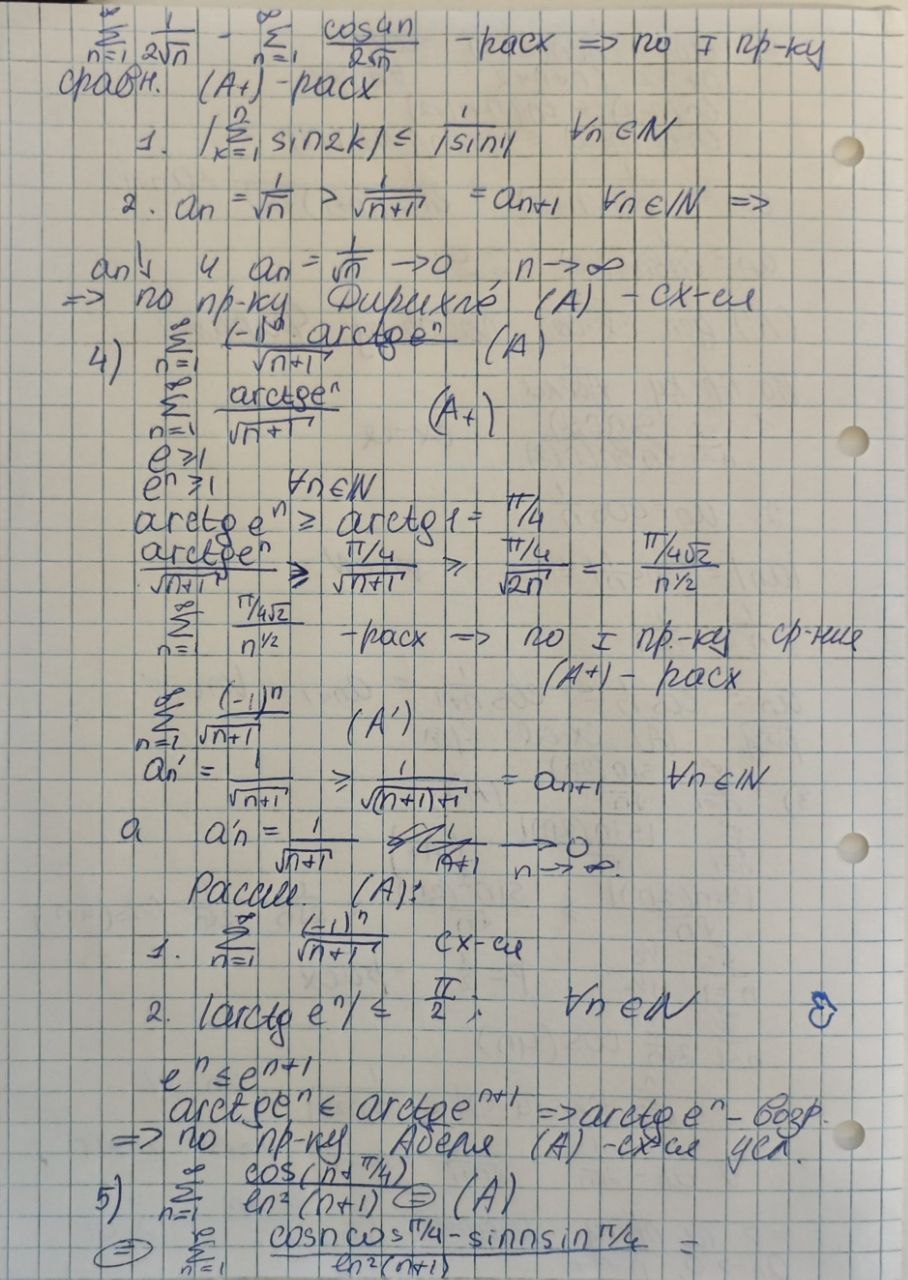 ∞∑n=1 1/(2√n) - ∞∑n=1 cos4n/(2√n) - расх => по I пр-ку
сравн. (A+) - расх
1. |n∑k=1 sin2k| ≤ 1/|sin1| ∀n∈N
2. an = 1/√n > 1/√(n+1) = an+1 ∀n∈N =>
an↓ и an = 1/√n → 0, n → ∞
=> по пр-ку Дирихле (A) - сх-ся
4) ∞∑n=1 (-1)ⁿ arctg eⁿ/√(n+1) (A)
∞∑n=1 arctg eⁿ/√(n+1) (A+)
e ≥ 1
eⁿ ≥ 1 ∀n∈N
arctg eⁿ ≥ arctg 1 = π/4
arctg eⁿ/√(n+1) ≥ (π/4)/√(n+1) ≥ (π/4)/√(2n) = (π/4√2)/n^(1/2)
∞∑n=1 (π/4√2)/n^(1/2) - расх => по I пр.-ку ср-ния
(A+) - расх
∞∑n=1 (-1)ⁿ/√(n+1) (A')
an' = 1/√(n+1) ≥ 1/√((n+1)+1) = an+1 ∀n∈N
а a'n = 1/√(n+1) → 0 n → ∞.
Рассм. (A):
1. ∞∑n=1 (-1)ⁿ/√(n+1) сх-ся
2. |arctg eⁿ| ≤ π/2; ∀n∈N
eⁿ ≤ eⁿ⁺¹
arctg eⁿ ≤ arctg eⁿ⁺¹ => arctg eⁿ - возр.
=> по пр-ку Абеля (A) - сх-ся усл.
5) ∞∑n=1 cos(n+π/4)/ln²(n+1) = (A)
= ∞∑n=1 (cosn cos π/4 - sinn sin π/4)/ln²(n+1) =